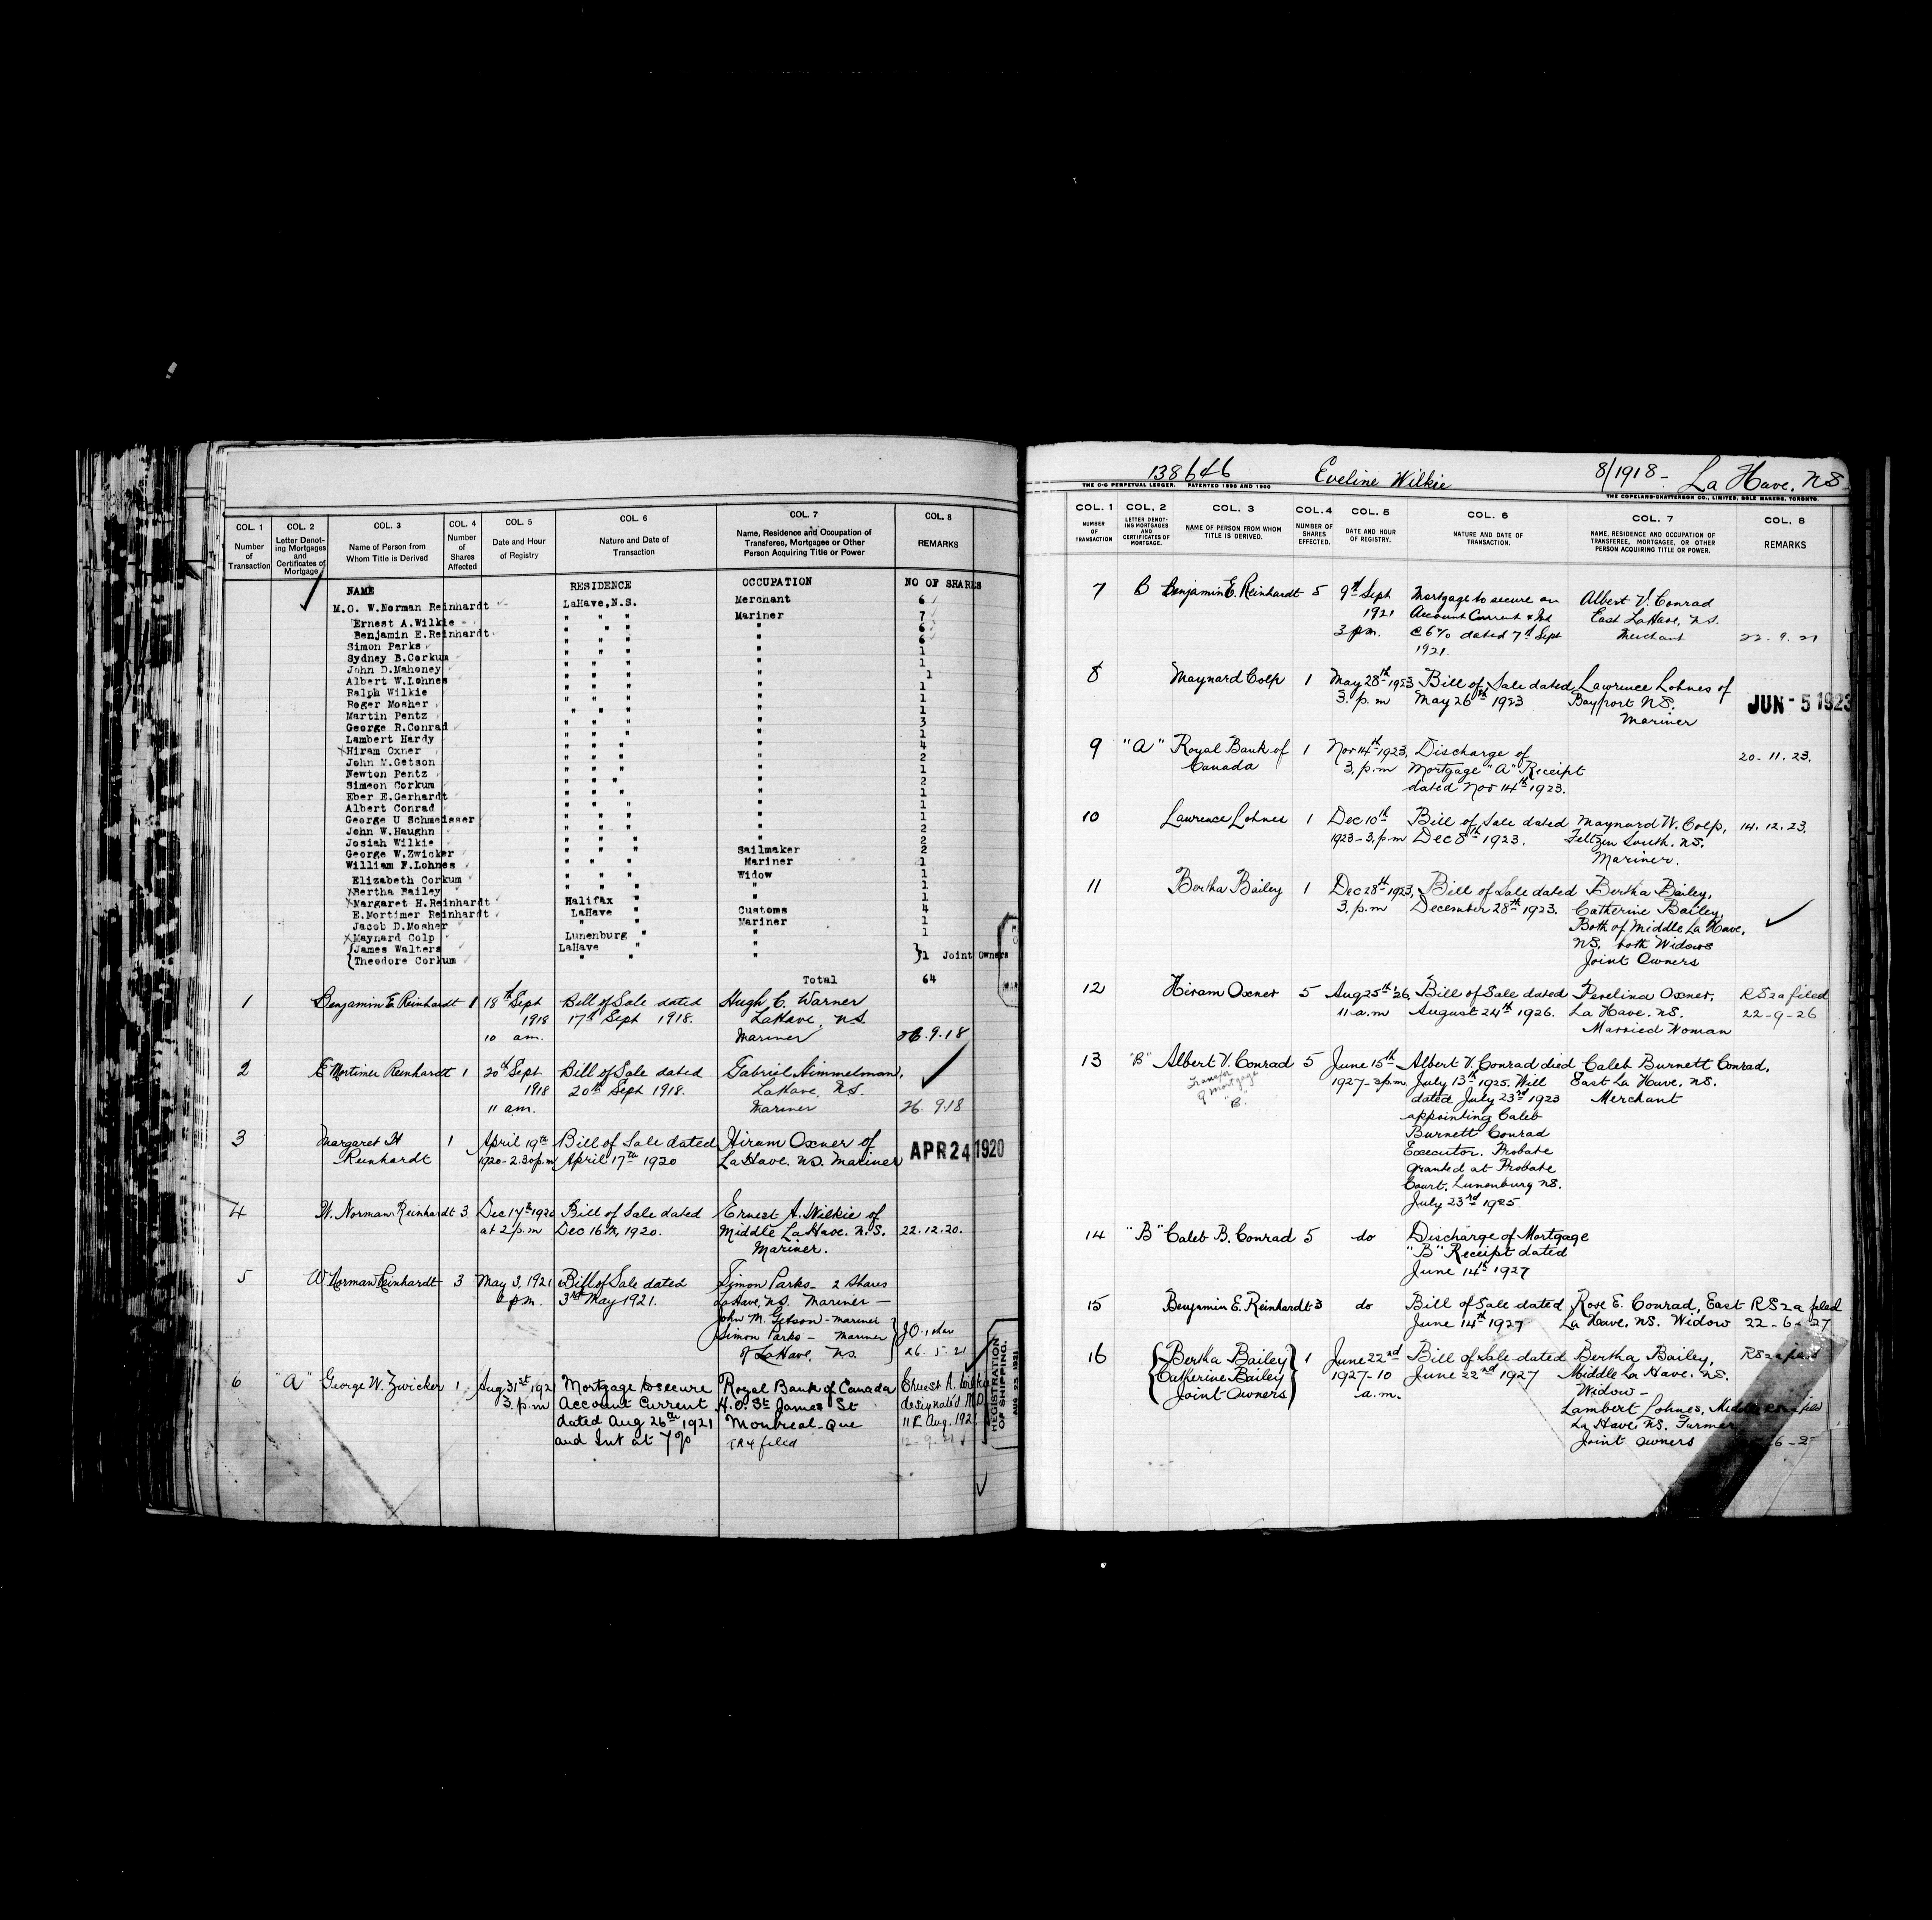 COL. 1
Number
of
Transaction
COL. 2
Letter Denot-
ing Mortgages
and
Certificates of
Mortgage
COL. 3
Name of Person from
Whom Title is Derived
COL. 4
Number
of
Shares
Affected
COL. 5
Date and Hour
of Registry
COL. 6
Nature and Date of
Transaction
COL. 7
Name, Residence and Occupation of
Transferee, Mortgagee or Other
Person Acquiring Title or Power
COL. 8
REMARKS
NAME RESIDENCE OCCUPATION NO OF SHARES
M.O. W.Norman Reinhardt LaHave,N.S. Merchant 6
Ernest A.Wilkie " " " Mariner 7
Benjamin E.Reinhardt " " " " 6
Simon Parks " " " " 6
Sydney B.Corkum " " " " 1
John D.Mahoney " " " " 1
Albert W.Lohnes " " " " 1
Ralph Wilkie " " " " 1
Roger Mosher " " " " 1
Martin Pentz " " " " 1
George R.Conrad " " " " 3
Lambert Hardy " " " " 1
Hiram Oxner " " " " 4
John M.Getson " " " " 2
Newton Pentz " " " " 1
Simeon Corkum " " " " 2
Eber E.Gerhardt " " " " 1
Albert Conrad " " " " 1
George U Schmeisser " " " " 1
John W.Haughn " " " " 2
Josiah Wilkie " " " " 2
George W.Zwicker " " " Sailmaker 2
William F.Lohnes " " " Mariner 1
Elizabeth Corkum " " " Widow 1
Bertha Bailey " " " " 1
Margaret H.Reinhardt Halifax " " 1
E.Mortimer Reinhardt LaHave " Customs 4
Jacob D.Mosher " " Mariner 1
Maynard Colp Lunenburg " " 1
James Walters LaHave " "
Theodore Corkum " " " }1 Joint Owners
Total 64
1 Benjamin E Reinhardt 1 18th Sept Bill of Sale dated Hugh C. Warner
1918 17th Sept 1918. LaHave, N.S.
10 am. Mariner 26.9.18
2 E Mortimer Reinhardt 1 20th Sept Bill of Sale dated Gabriel Himmelman,
1918 20th Sept 1918. LaHave, N.S.
11 am. Mariner 26.9.18
3 Margaret H 1 April 19th Bill of Sale dated Hiram Oxner of
Reinhardt 1920-2.30p.m April 17th 1920 LaHave. N.S. Mariner APR 24 1920
4 W. Norman Reinhardt 3 Dec 17th 1920 Bill of Sale dated Ernest A. Wilkie of
at 2 p.m Dec 16th, 1920. Middle LaHave. N.S. 22.12.20.
Mariner.
5 W Norman Reinhardt 3 May 3, 1921 Bill of Sale dated Simon Parks - 2 shares
pm. 3rd May 1921. LaHave, N.S. Mariner -
John M. Getson - mariner
Simon Parks - Mariner } J.O. 1 shar
of LaHave, N.S. 26. 5. 21
6 "A" George W. Zwicker 1 Aug 31st 1921 Mortgage to secure Royal Bank of Canada Ernest A. Wilkie
3. p.m Account Current H.O. St James St designated M.O.
dated Aug 26th 1921 Montreal-Que Aug. 1921
and Int at 7% filed 12-9-21
REGISTRATION
OF SHIPPING.
AUG 23 1921
138646 Eveline Wilkie 8/1918- La Have. N.S.
THE C-C PERPETUAL LEDGER. PATENTED 1888 AND 1900
THE COPELAND-CHATTERSON CO., LIMITED, SOLE MAKERS, TORONTO.
COL. 1
NUMBER
OF
TRANSACTION
COL. 2
LETTER DENOT-
ING MORTGAGES
AND
CERTIFICATES OF
MORTGAGE.
COL. 3
NAME OF PERSON FROM WHOM
TITLE IS DERIVED.
COL. 4
NUMBER OF
SHARES
EFFECTED.
COL. 5
DATE AND HOUR
OF REGISTRY.
COL. 6
NATURE AND DATE OF
TRANSACTION.
COL. 7
NAME, RESIDENCE AND OCCUPATION OF
TRANSFEREE, MORTGAGEE, OR OTHER
PERSON ACQUIRING TITLE OR POWER.
COL. 8
REMARKS
7 B Benjamin E. Reinhardt 5 9th Sept Mortgage to secure an Albert V. Conrad
1921 Account Current & Int East LaHave, N.S.
3 pm. @ 6% dated 7th Sept Merchant 22. 9. 21
1921.
8 Maynard Colp 1 May 28th 1923 Bill of Sale dated Lawrence Lohnes of
3. p. m May 26th 1923 Bayport N.S. JUN - 5 1923
Mariner
9 "A" Royal Bank of 1 Nov 14th 1923, Discharge of
Canada 3, p.m Mortgage "A" Receipt 20. 11. 23.
dated Nov 14th 1923.
10 Lawrence Lohnes 1 Dec 10th Bill of Sale dated Maynard W. Colp, 14. 12. 23.
1923-3, p.m Dec 8th 1923. Feltzen South. N.S.
Mariner.
11 Bertha Bailey 1 Dec 28th 1923, Bill of Sale dated Bertha Bailey,
3. p.m December 28th 1923. Catherine Bailey,
Both of Middle La Have,
N.S. both Widows
Joint Owners
12 Hiram Oxner 5 Aug 25th '26, Bill of Sale dated Perelina Oxner, RS2a filed
11 a.m August 24th 1926. La Have. N.S. 22-9-26
Married Woman
13 "B" Albert V. Conrad 5 June 15th Albert V. Conrad died Caleb Burnett Conrad,
Transfer
of mortgage
"B."
1927-3p.m, July 13th 1925. Will East La Have, N.S.
dated July 23rd 1923 Merchant
appointing Caleb
Burnett Conrad
Executor. Probate
granted at Probate
Court. Lunenburg N.S.
July 23rd 1925
14 "B" Caleb B. Conrad 5 do Discharge of Mortgage
"B" Receipt dated
June 14th 1927
15 Benjamin E. Reinhardt 3 do Bill of Sale dated Rose E. Conrad, East RS2a filed
June 14th 1927 La Have, N.S. Widow 22-6-27
16 { Bertha Bailey } 1 June 22nd Bill of Sale dated Bertha Bailey, RS2a filed
Catherine Bailey 1927-10 June 22nd 1927 Middle La Have. N.S.
Joint Owners a.m. Widow -
Lambert Lohnes, Middle
La Have N.S. Farmer
Joint Owners